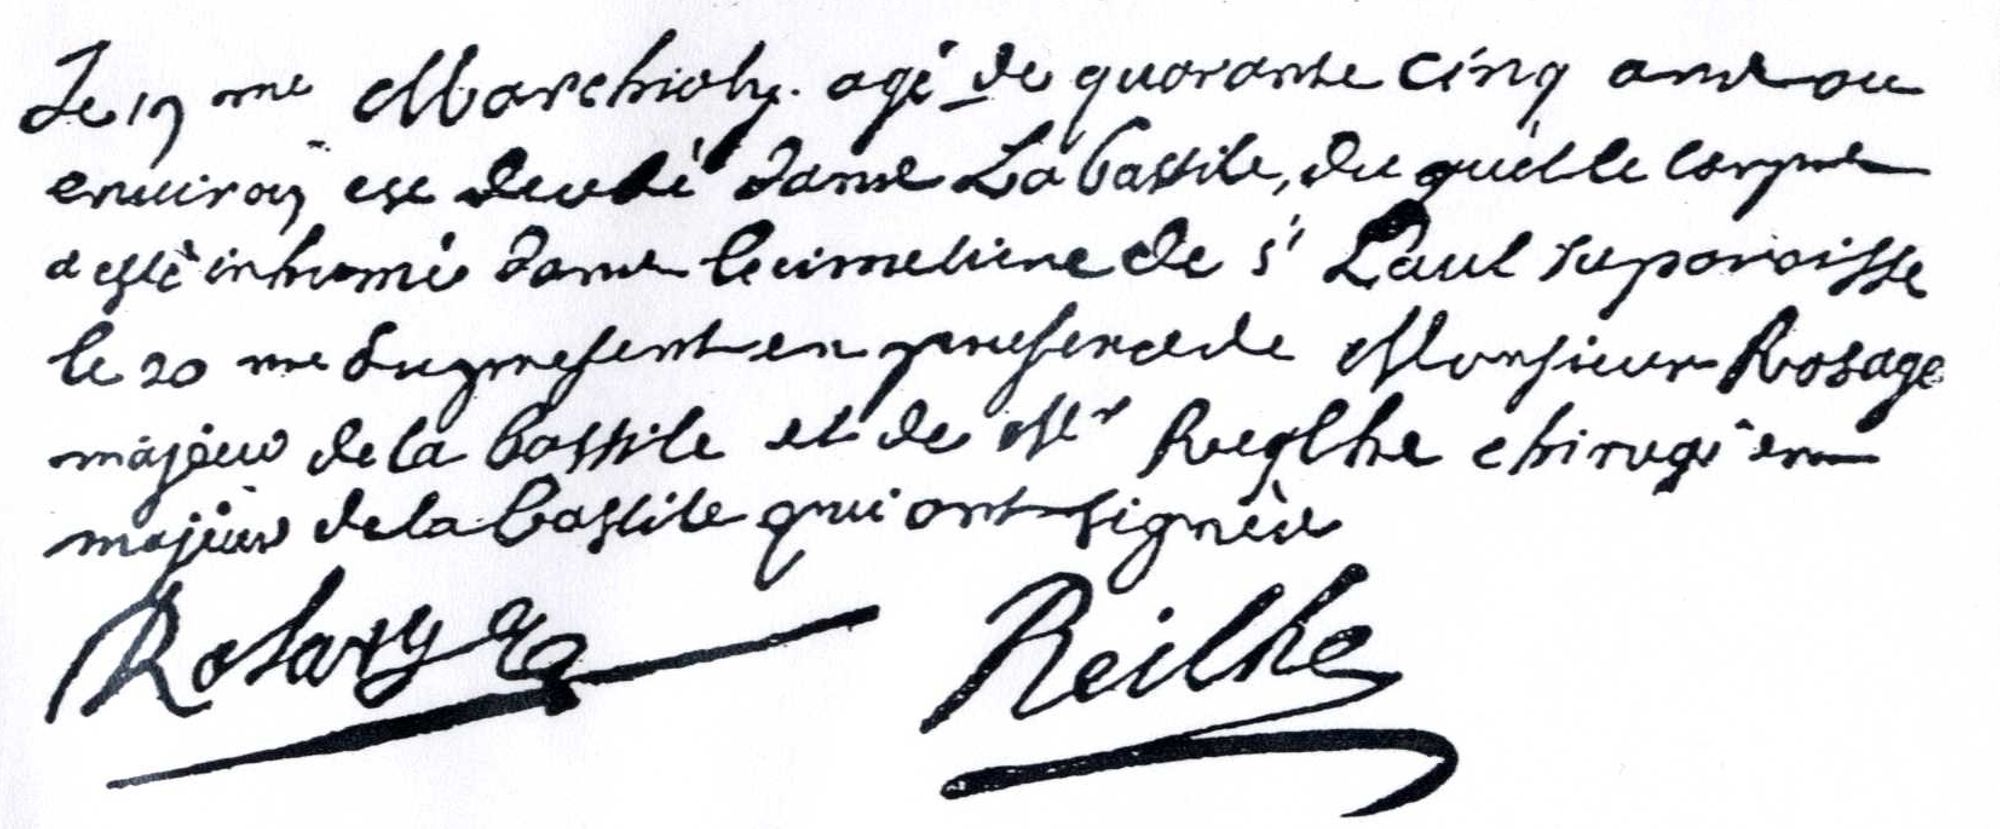 Le 19 me Marchioly. agé de quarante cinq ans ou
environ est decedé dans La bastile, du quel le corps
a esté inhumé dans le cimetiere de St Paul sa paroisse
le 20 me du present en presence de Monsieur Rosage
majeur de la bastile et de Mr Reglhe chirugien
majeur de la bastile qui ont signé
Rosarges
Reilhe